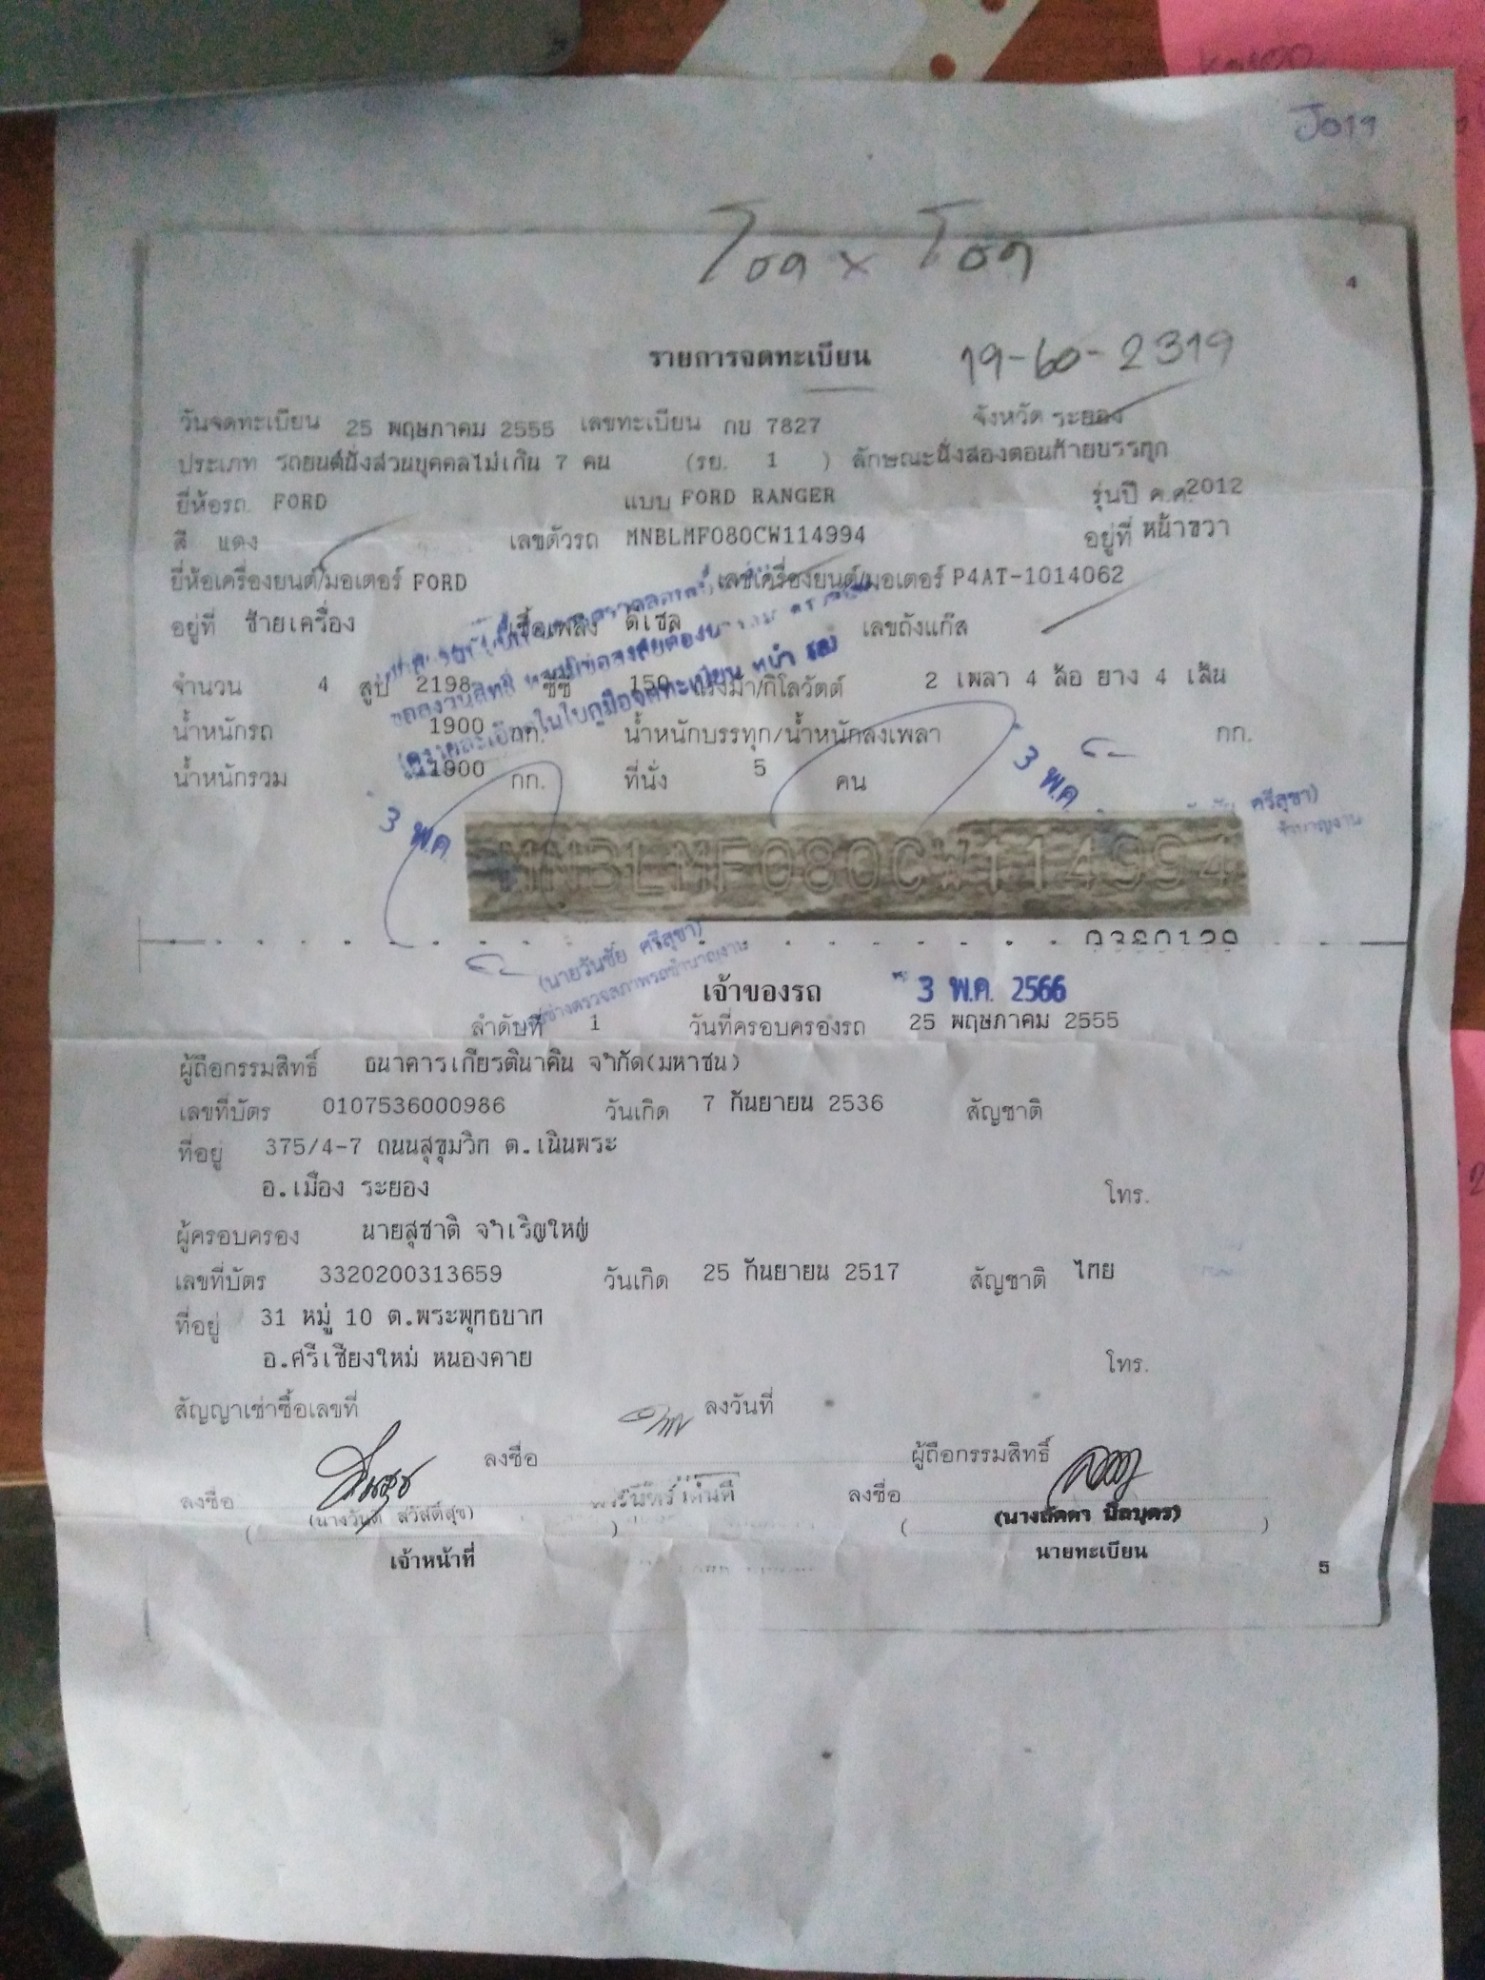 J019
โอด x โอด
4
รายการจดทะเบียน 19-60-2319
วันจดทะเบียน 25 พฤษภาคม 2555 เลขทะเบียน กบ 7827 จังหวัด ระยอง
ประเภท รถยนต์นั่งส่วนบุคคลไม่เกิน 7 คน (รย. 1 ) ลักษณะนั่งสองตอนท้ายบรรทุก
ยี่ห้อรถ FORD แบบ FORD RANGER รุ่นปี ค.ศ.2012
สี แดง เลขตัวรถ MNBLMF080CW114994 อยู่ที่ หน้าขวา
ยี่ห้อเครื่องยนต์/มอเตอร์ FORD เลขเครื่องยนต์/มอเตอร์ P4AT-1014062
อยู่ที่ ซ้ายเครื่อง เชื้อเพลิง ดีเซล เลขถังแก๊ส
จำนวน 4 สูบ 2198 ซีซี 150 แรงม้า/กิโลวัตต์ 2 เพลา 4 ล้อ ยาง 4 เส้น
น้ำหนักรถ 1900 กก. น้ำหนักบรรทุก/น้ำหนักลงเพลา กก.
น้ำหนักรวม 1900 กก. ที่นั่ง 5 คน
3 พ.ค. 3 พ.ค. ศรีสุขา)
ชำนาญงาน
MNBLMF080CW114994
(นายวันชัย ศรีสุขา)
นายช่างตรวจสภาพรถชำนาญงาน
เจ้าของรถ 3 พ.ค. 2566
ลำดับที่ 1 วันที่ครอบครองรถ 25 พฤษภาคม 2555
ผู้ถือกรรมสิทธิ์ ธนาคารเกียรตินาคิน จำกัด(มหาชน)
เลขที่บัตร 0107536000986 วันเกิด 7 กันยายน 2536 สัญชาติ
ที่อยู่ 375/4-7 ถนนสุขุมวิท ต.เนินพระ
อ.เมือง ระยอง โทร.
ผู้ครอบครอง นายสุชาติ จำเริญใหญ่
เลขที่บัตร 3320200313659 วันเกิด 25 กันยายน 2517 สัญชาติ ไทย
ที่อยู่ 31 หมู่ 10 ต.พระพุทธบาท
อ.ศรีเชียงใหม่ หนองคาย โทร.
สัญญาเช่าซื้อเลขที่ ลงวันที่
ลงชื่อ ผู้ถือกรรมสิทธิ์
ลงชื่อ ลงชื่อ
(นางวันดี สวัสดีสุข) (นางลัดดา นิลบุตร)
เจ้าหน้าที่ นายทะเบียน
5